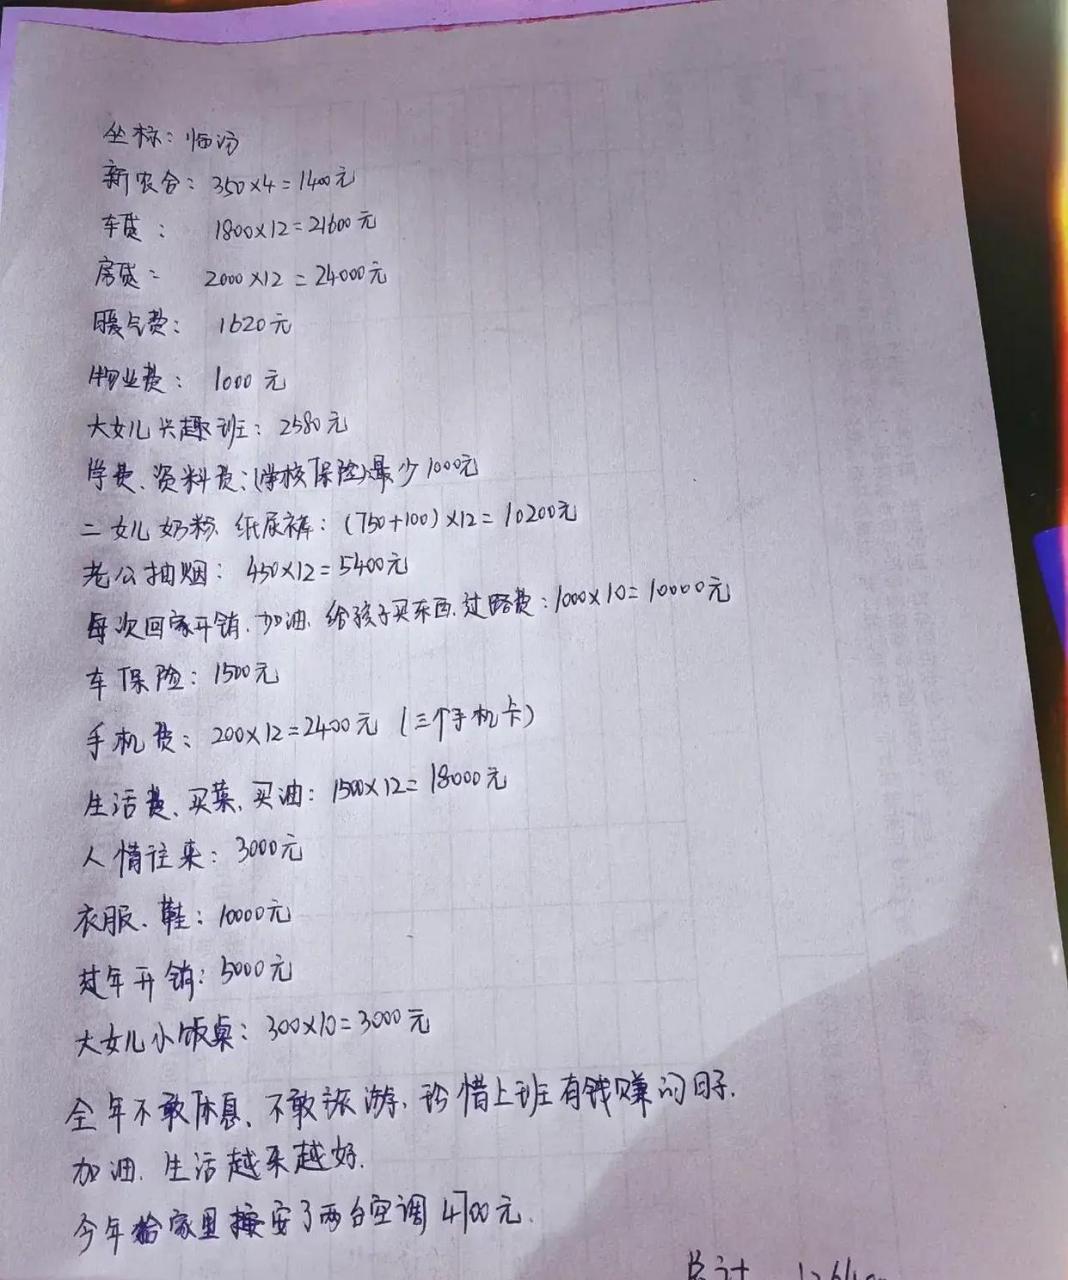 坐标：临汾
新农合：350×4=1400元
车贷：1800×12=21600元
房贷：2000×12=24000元
暖气费：1620元
物业费：1000元
大女儿兴趣班：2580元
学费、资料费：(学校保险)最少1000元
二女儿奶粉、纸尿裤：(750+100)×12=10200元
老公抽烟：450×12=5400元
每次回家开销、加油、给孩子买东西、过路费：1000×10=10000元
车保险：1500元
手机费：200×12=2400元（三个手机卡）
生活费、买菜、买油：1500×12=18000元
人情往来：3000元
衣服、鞋：10000元
过年开销：5000元
大女儿小饭桌：300×10=3000元
全年不敢休息、不敢旅游、珍惜上班有钱赚的日子.
加油、生活越来越好.
今年给家里安了两台空调4700元.
总计